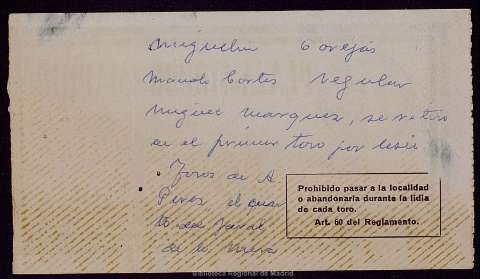 Miguelin 6 orejas
Manolo Cortes regular
Miguel Marquez, se retiro
en el primer toro por lesió
Toros de A.
Perez el cuar
to de
de la
Prohibido pasar a la localidad
o abandonarla durante la lidia
de cada toro.
Art. 60 del Reglamento.
Biblioteca Regional de Madrid